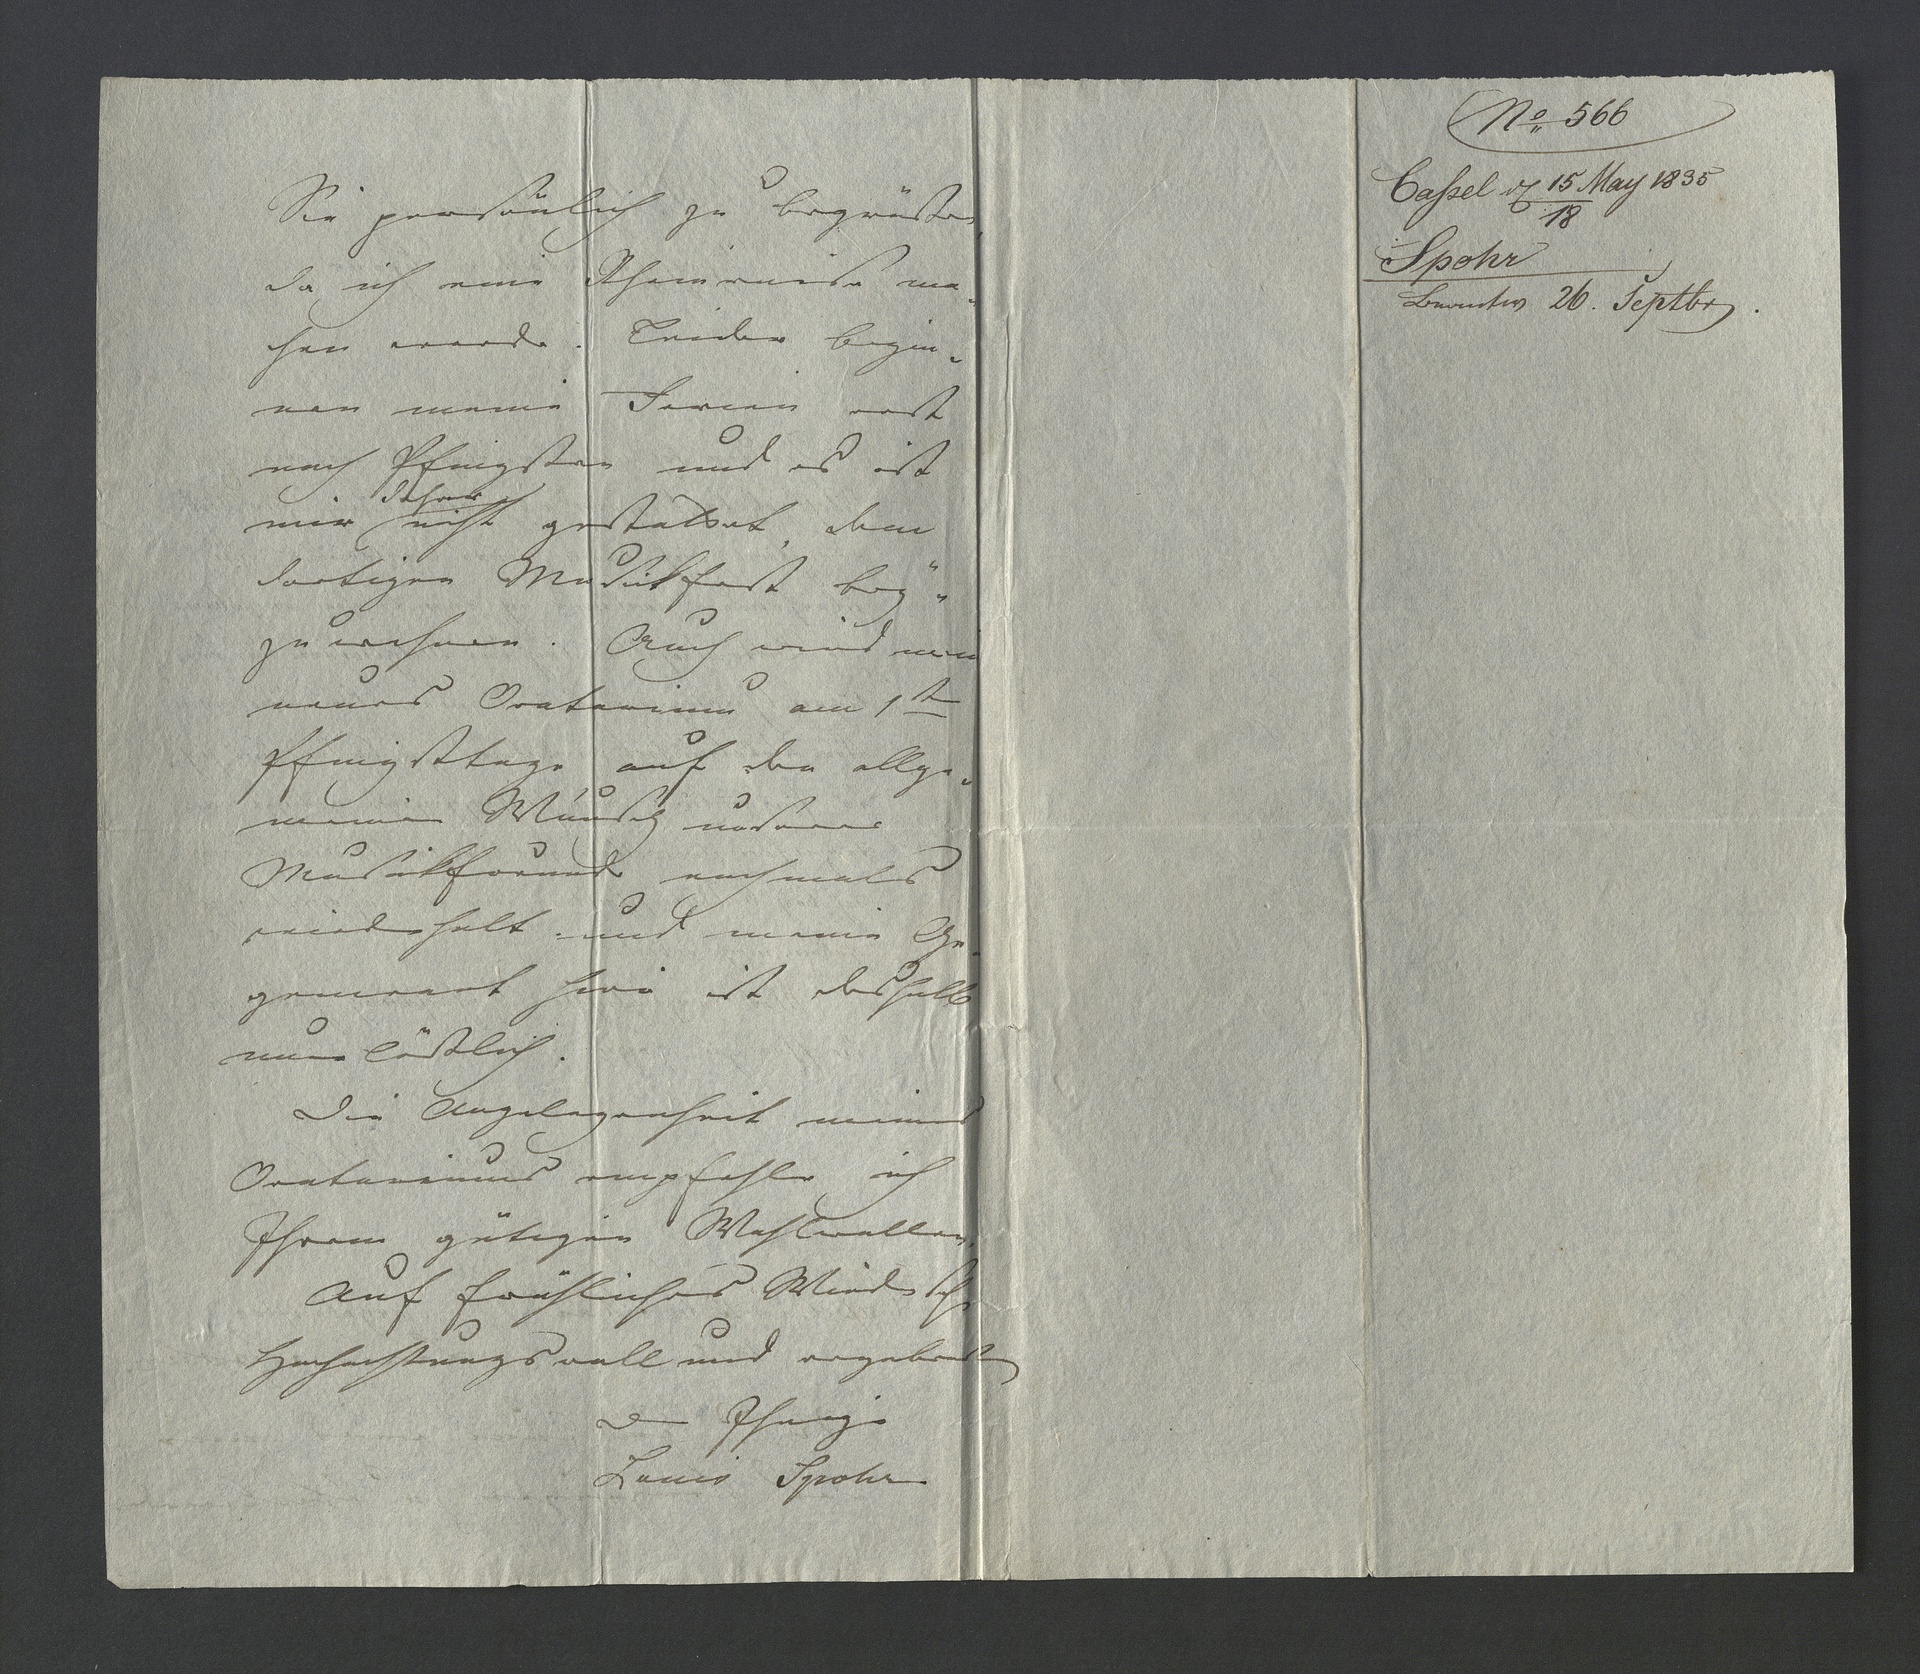 Sie persönlich zu begrüßen,
da ich eine Rheinreise ma-
chen werde. Leider begin-
nen meine Ferien erst
nach Pfingsten und es ist
mir daher nicht gestattet, dem
dortigen Musikfest bey-
zuwohnen. Auch wird mein
neues Oratorium am 1sten
Pfingsttage auf den allge-
meinen Wunsch unserer
Musikfreunde nochmals
wiederholt und meine Ge-
genwart hier ist deshalb
unerläßlich.
Die Angelegenheit meines
Oratoriums empfehle ich
Ihrem gütigen Wohlwollen.
Auf fröhliches Wiedersehn
Hochachtungsvoll und ergebenst
der Ihrige
Louis Spohr
No. 566
Cassel d 15/18 May 1835
Spohr
26. Septbr.